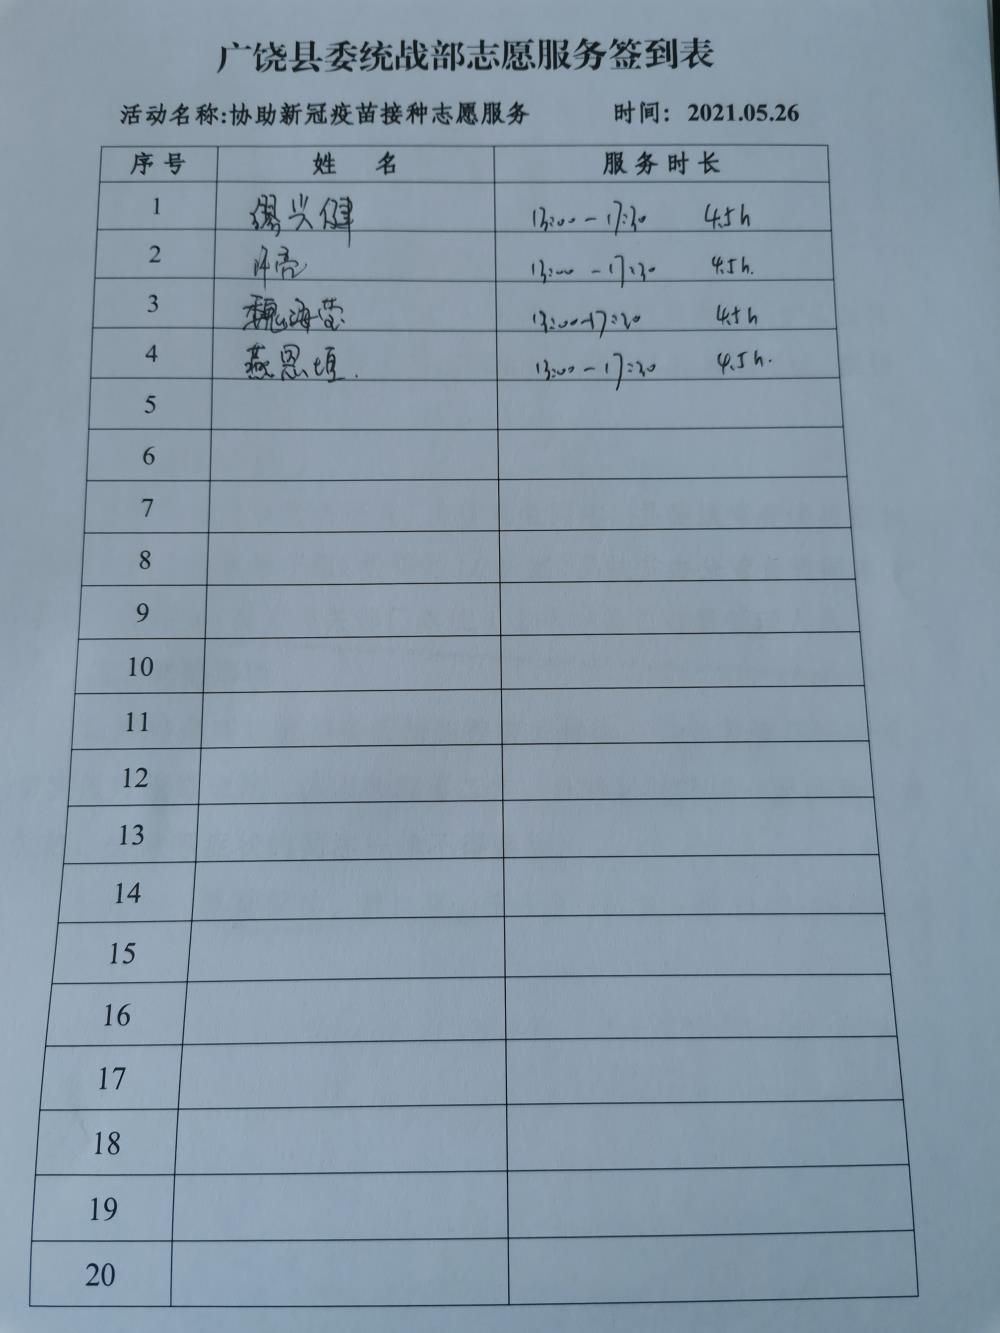 广饶县委统战部志愿服务签到表
活动名称:协助新冠疫苗接种志愿服务 时间: 2021.05.26
序号 姓 名 服务时长
1 兴健 13:00-17:30 4.5h
2 亮 13:00-17:30 4.5h.
3 魏海莹 13:00-17:30 4.5h
4 燕恩垣. 13:00-17:30 4.5h.
5
6
7
8
9
10
11
12
13
14
15
16
17
18
19
20